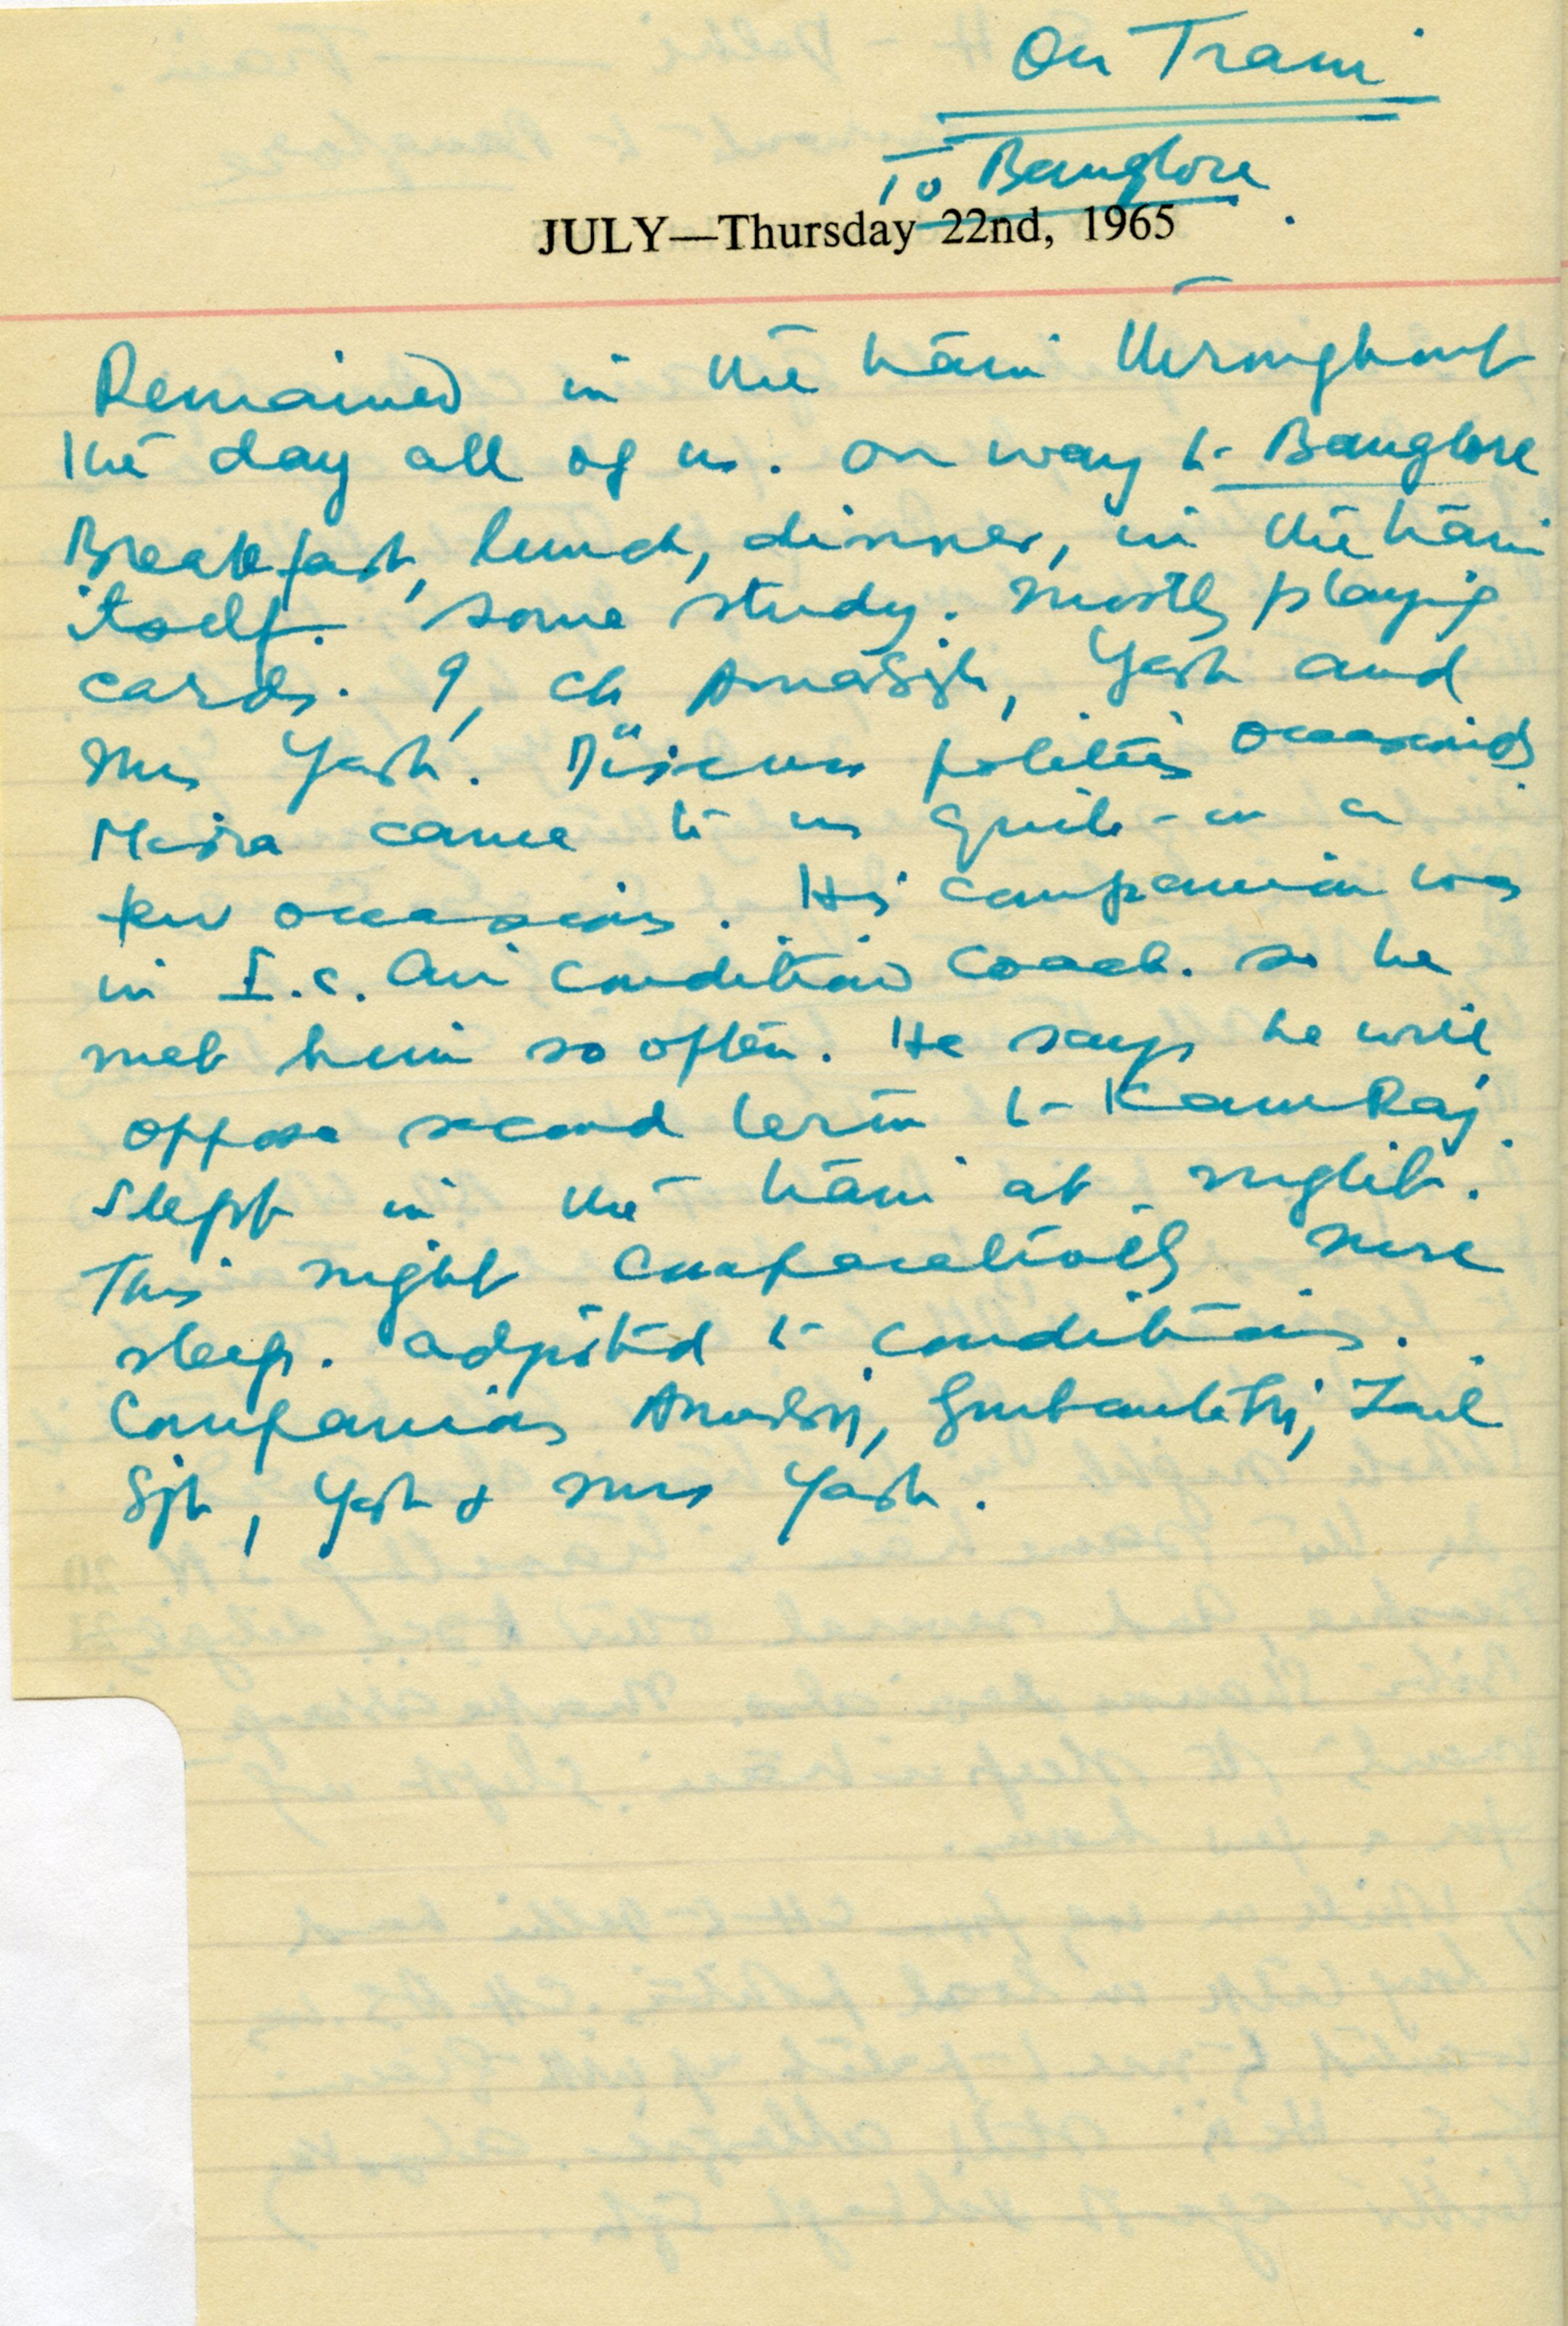 On Train
To Banglore
JULY—Thursday 22nd, 1965
Remained in the train throughout
the day all of us. On way to Banglore
Breakfast, lunch, dinner, in the train
itself. Some study. Mostly playing
cards. I, Ch AmarSgh, Yash and
Mrs Yash. Discuss politics
Misra came to us quite - on a
few occasions. His companion was
in I.c. Air Condition Coach. So he
met him so often. He says he will
oppose second term to KamRaj.
Slept in the train at night.
This night comparatively more
sleep. adjusted to conditions.
Companions Zail
Sgh, Yash & Mrs Yash.